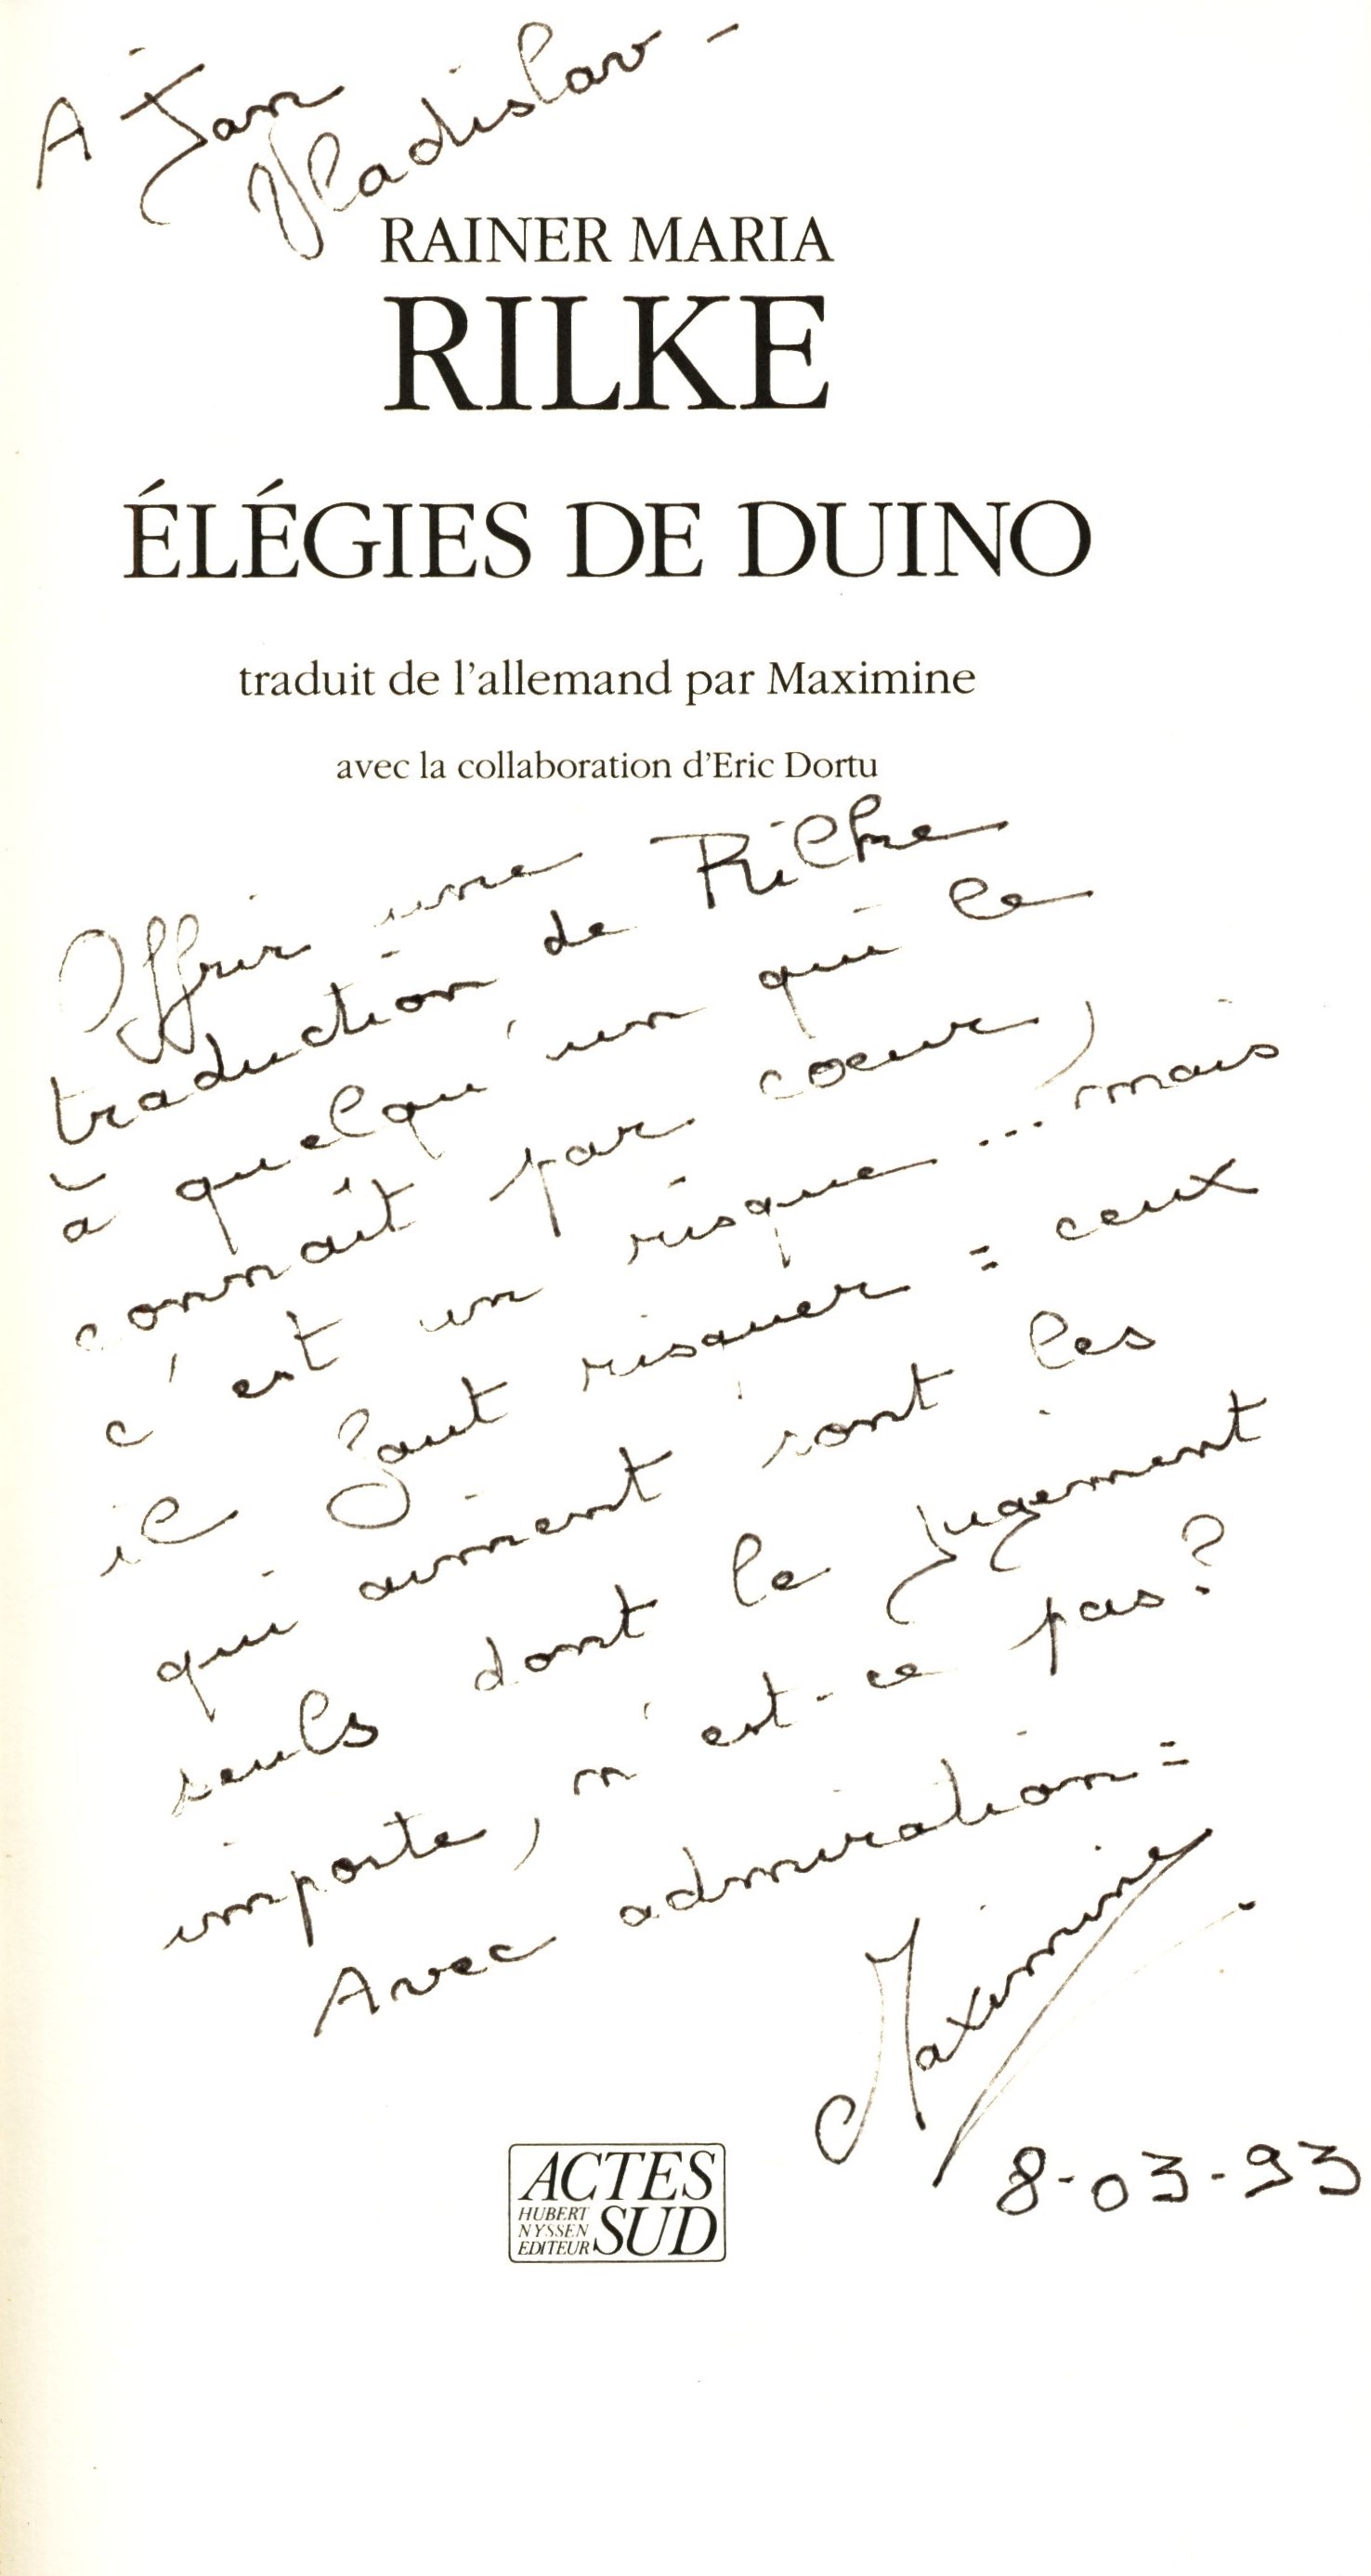 A Jan
Vladislav -
RAINER MARIA
RILKE
ÉLÉGIES DE DUINO
traduit de l'allemand par Maximine
avec la collaboration d'Eric Dortu
Offrir une
traduction de Rilke
à quelqu'un qui le
connaît par coeur,
c'est un risque... mais
il faut risquer = ceux
qui aiment sont les
seuls dont le jugement
importe, n'est-ce pas?
Avec admiration =
Maximine
8-03-93
ACTES
SUD
HUBERT
NYSSEN
EDITEUR